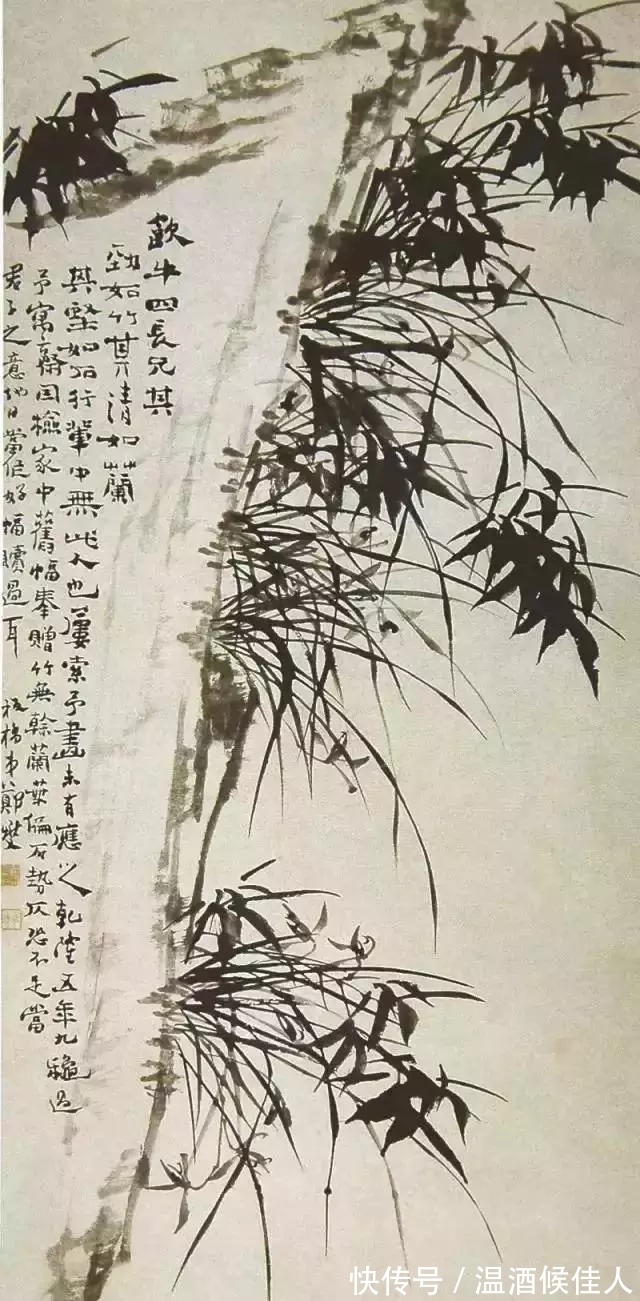 四長兄其
勁如竹其清如蘭
其堅如石行輩中無此人也屢索予畫未有應之乾隆五年九龝過
予寓齋因檢家中舊幅奉贈竹無榦蘭葉偏石勢仄恐不足當
君子之意他日當作好幅贖過耳 板橋弟鄭燮
快传号 / 温酒候佳人